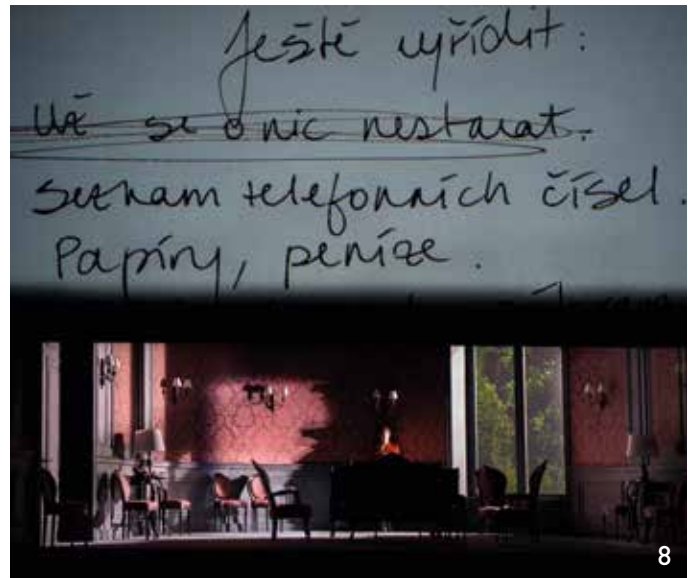 Ještě vyřídit:
Už se o nic nestarat.
Seznam telefonních čísel.
Papíry, peníze.
8